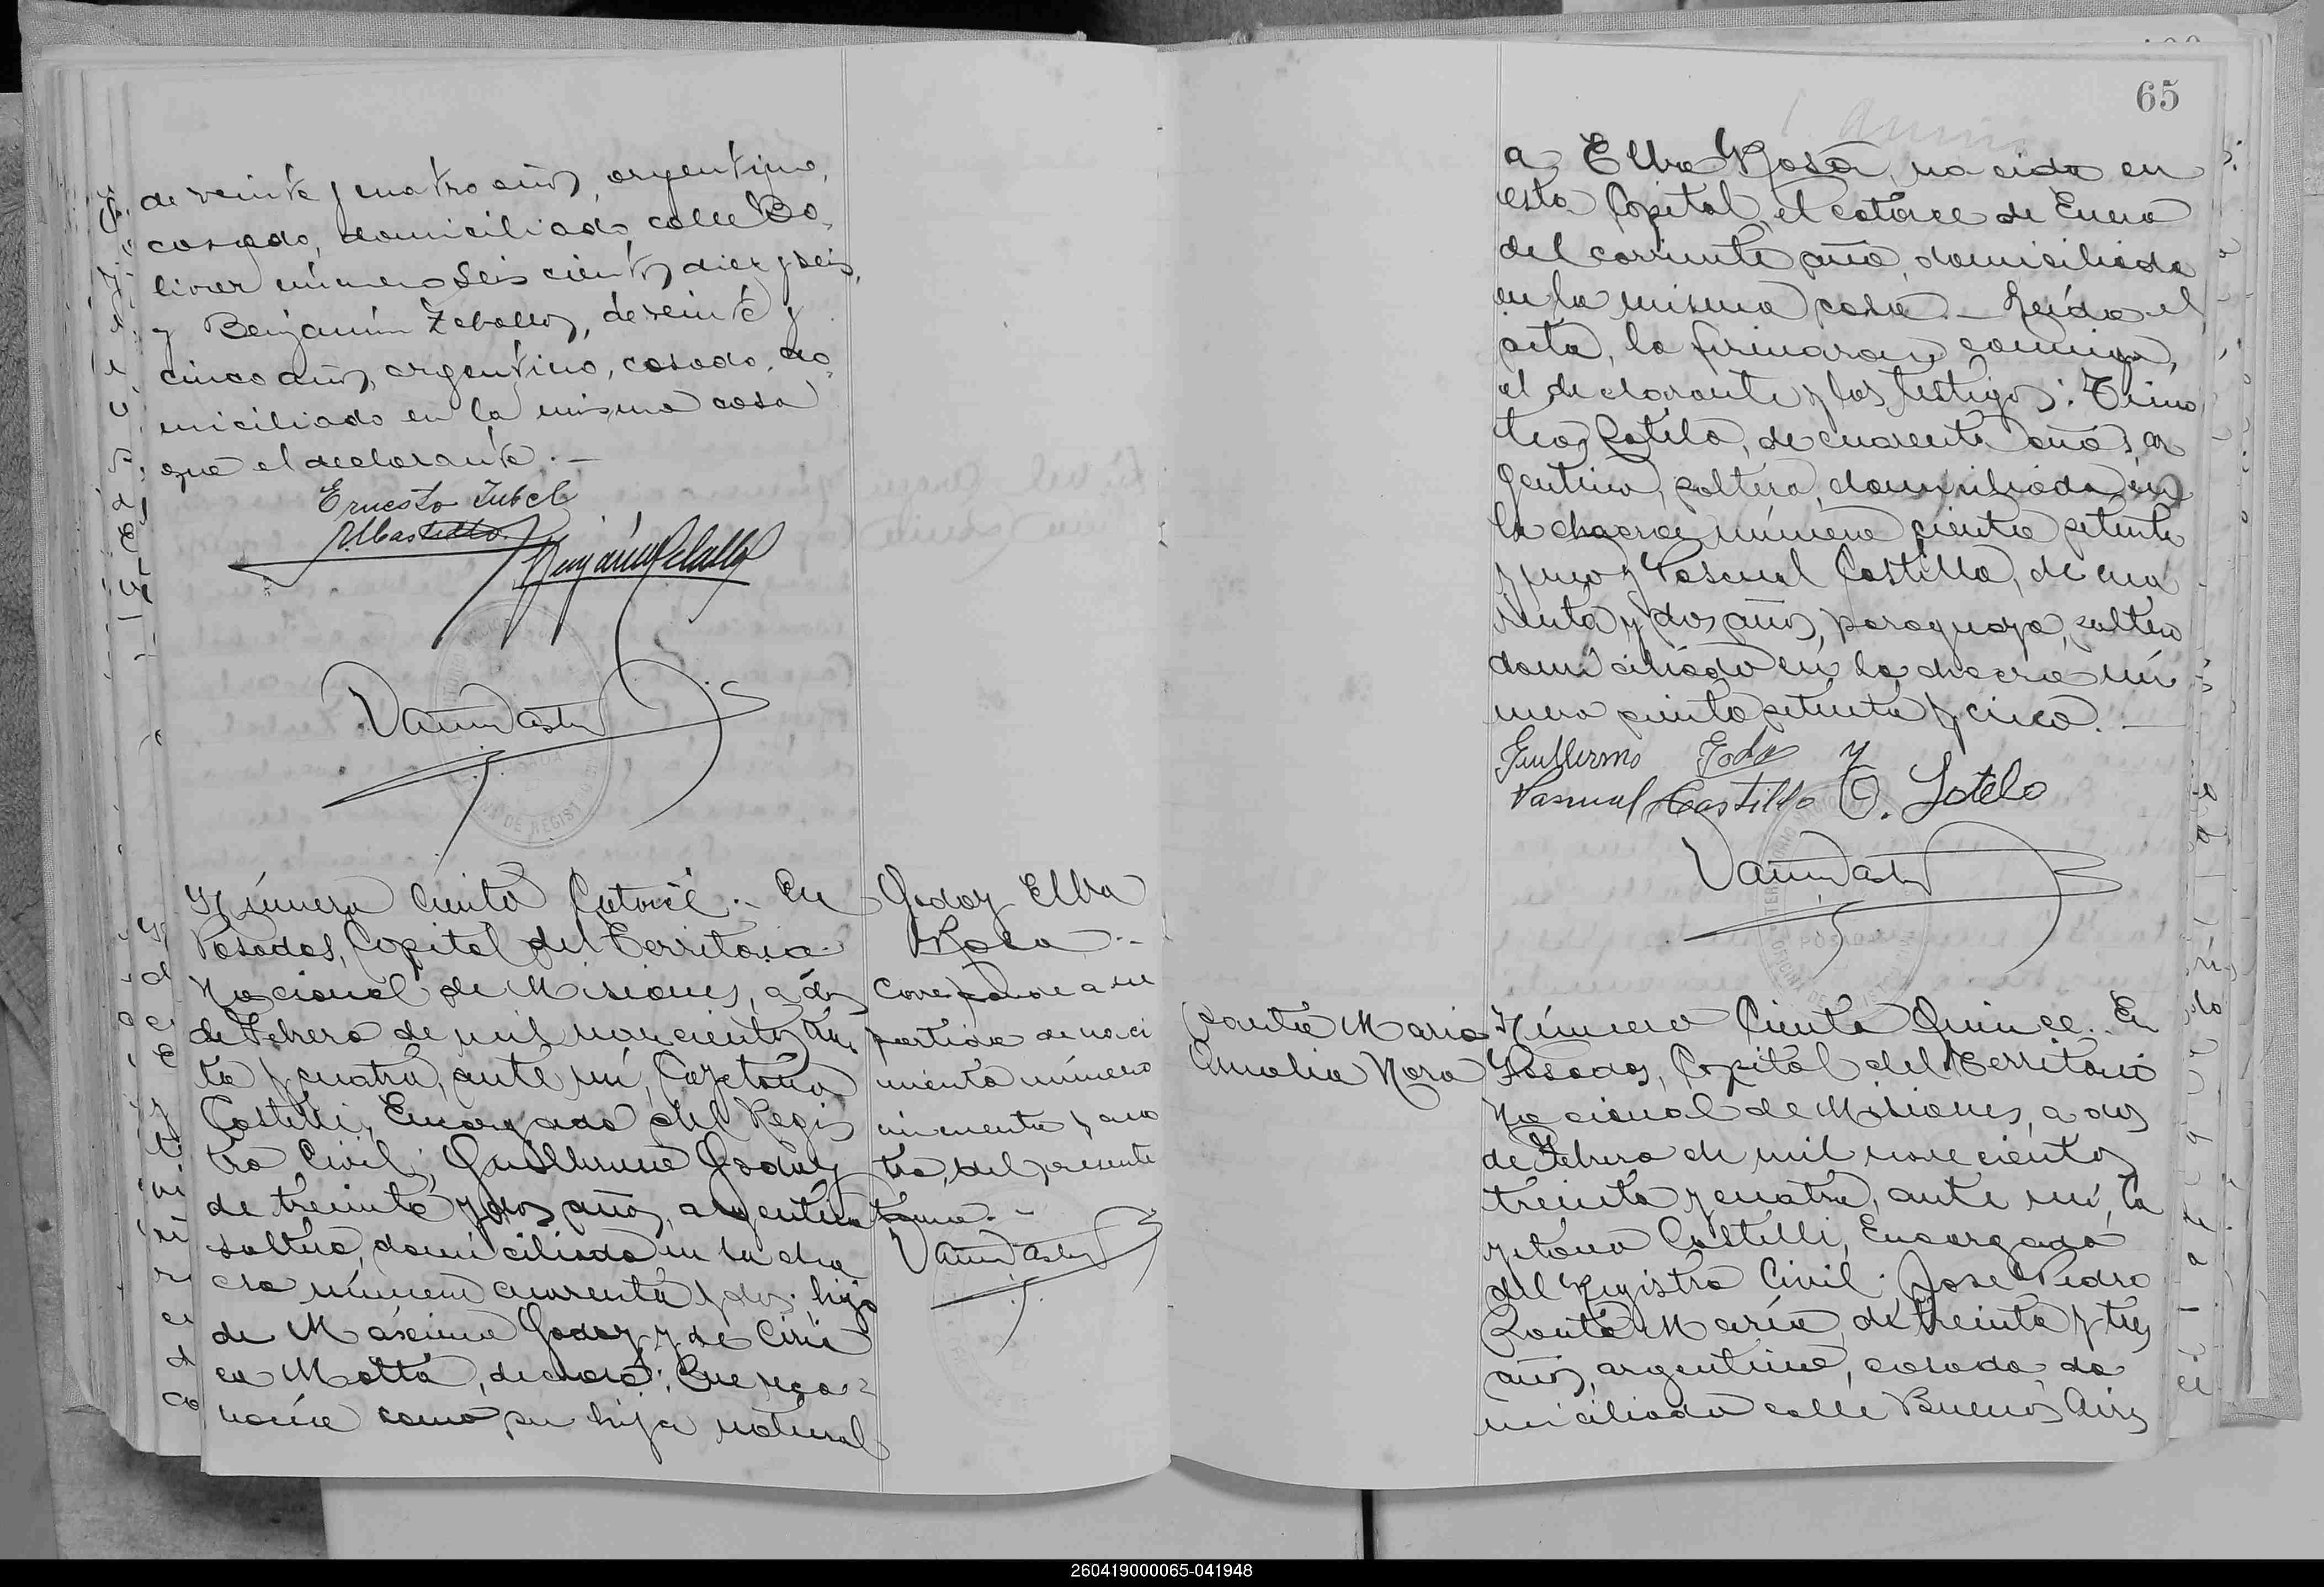 de veinte y cuatro años, argentino,
casado, domiciliado calle Bo-
livar número seis cientos diez y seis,
y Benjamín Zeballos, de veinte y
cinco años, argentino, casado, do-
miciliado en la misma casa
que el declarante.—
Ernesto Zubel
Benjamín Zeballos
Número Ciento Catorce.- En
Posadas, Capital del Territorio
Nacional de Misiones, a dos
de Febrero de mil novecientos trein
ta y cuatro, ante mí, Cayetano
Castelli, Encargado del Regis
tro Civil; Guillermo Godoy
de treinta y dos años, argentino
soltero, domiciliado en la cha
cra número cuarenta y dos, hijo
de Máximo Godoy y de Ciria
ca Motta, declaró: Que reco-
nocía como su hija natural
Godoy Elba
Rosa.-
Corresponde a su
partida de naci
miento número
cincuenta y cua
tro, del presente
tomo.-
65
a Elba Rosa, nacida en
esta Capital, el catorce de Enero
del corriente año, domiciliada
en la misma casa.— Leída el
acta, la firmaron conmigo,
el declarante y los testigos: Timo
teo Sotelo, de cuarenta años, ar
gentino, soltero, domiciliado en
la chacra número ciento setenta
y cinco y Pascual Castillo, de cua
renta y dos años, paraguayo, soltero
domiciliado en la chacra nú
mero ciento setenta y cinco.—
Guillermo Godoy
Pascual Castillo O. Sotelo
POSADAS
Santa Maria
Amalia Nora
Número Ciento Quince.- En
Posadas, Capital del Territorio
Nacional de Misiones, a dos
de Febrero de mil novecientos
treinta y cuatro, ante mí, Ca
yetano Castelli, Encargado
del Registro Civil: José Pedro
Santa María, de treinta y tres
años, argentino, casado, do
miciliado calle Buenos Aires
260419000065-041948